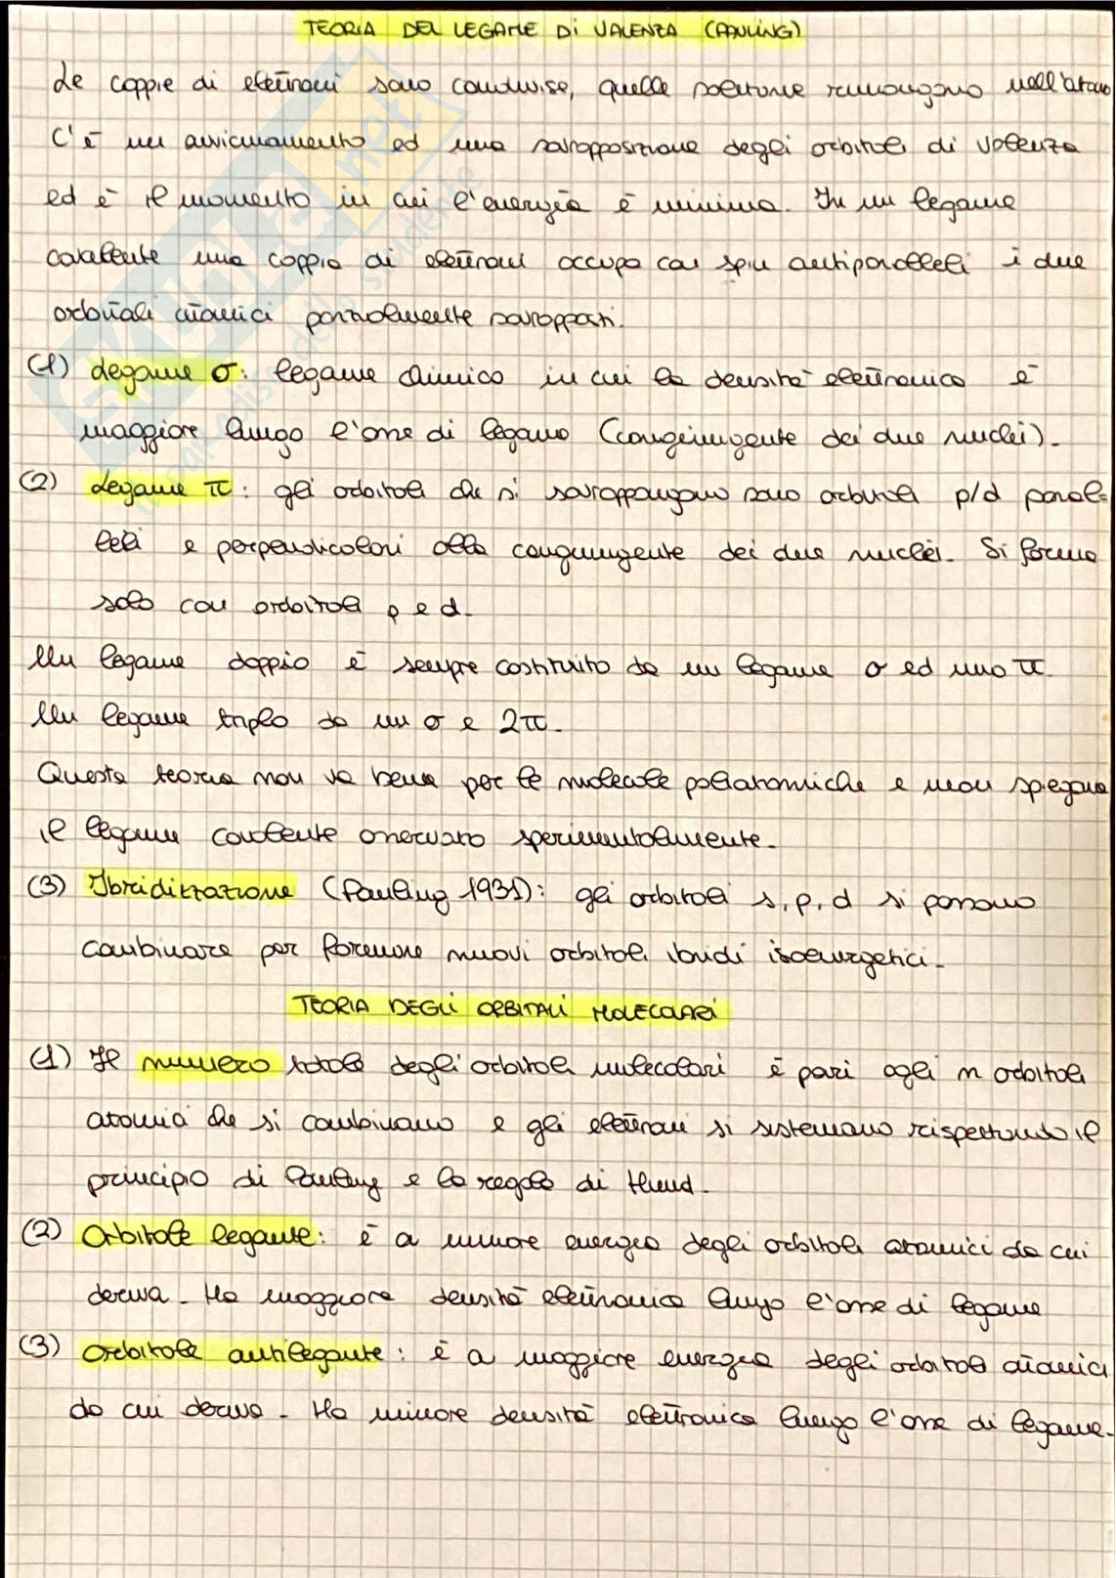 TEORIA DEL LEGAME DI VALENZA (PAULING)
Le coppie di elettroni sono condivise, quelle solitarie rimangono nell'atomo
C'è un avvicinamento ed una sovrapposizione degli orbitali di valenza
ed è il momento in cui l'energia è minima. In un legame
covalente una coppia di elettroni occupa con spin antiparalleli i due
orbitali atomici parzialmente sovrapposti.
(1) Legame σ: legame chimico in cui la densità elettronica è
maggiore lungo l'asse di legame (congiungente dei due nuclei).
(2) Legame π: gli orbitali che si sovrappongono sono orbitali p/d paral=
leli e perpendicolari alla congiungente dei due nuclei. Si forma
solo con orbitali p e d.
Un legame doppio è sempre costituito da un legame σ ed uno π.
Un legame triplo da un σ e 2π.
Questa teoria non va bene per le molecole poliatomiche e non spiegava
il legame covalente osservato sperimentalmente.
(3) Ibridizzazione (Pauling 1931): gli orbitali s, p, d si possono
combinare per formare nuovi orbitali ibridi isoenergetici.
TEORIA DEGLI ORBITALI MOLECOLARI
(1) Il numero totale degli orbitali molecolari è pari agli n orbitali
atomici che si combinano e gli elettroni si sistemano rispettando il
principio di Pauling e la regola di Hund.
(2) Orbitale legante: è a minore energia degli orbitali atomici da cui
deriva. Ha maggiore densità elettronica lungo l'asse di legame
(3) Orbitale antilegante: è a maggiore energia degli orbitali atomici
da cui deriva. Ha minore densità elettronica lungo l'asse di legame.